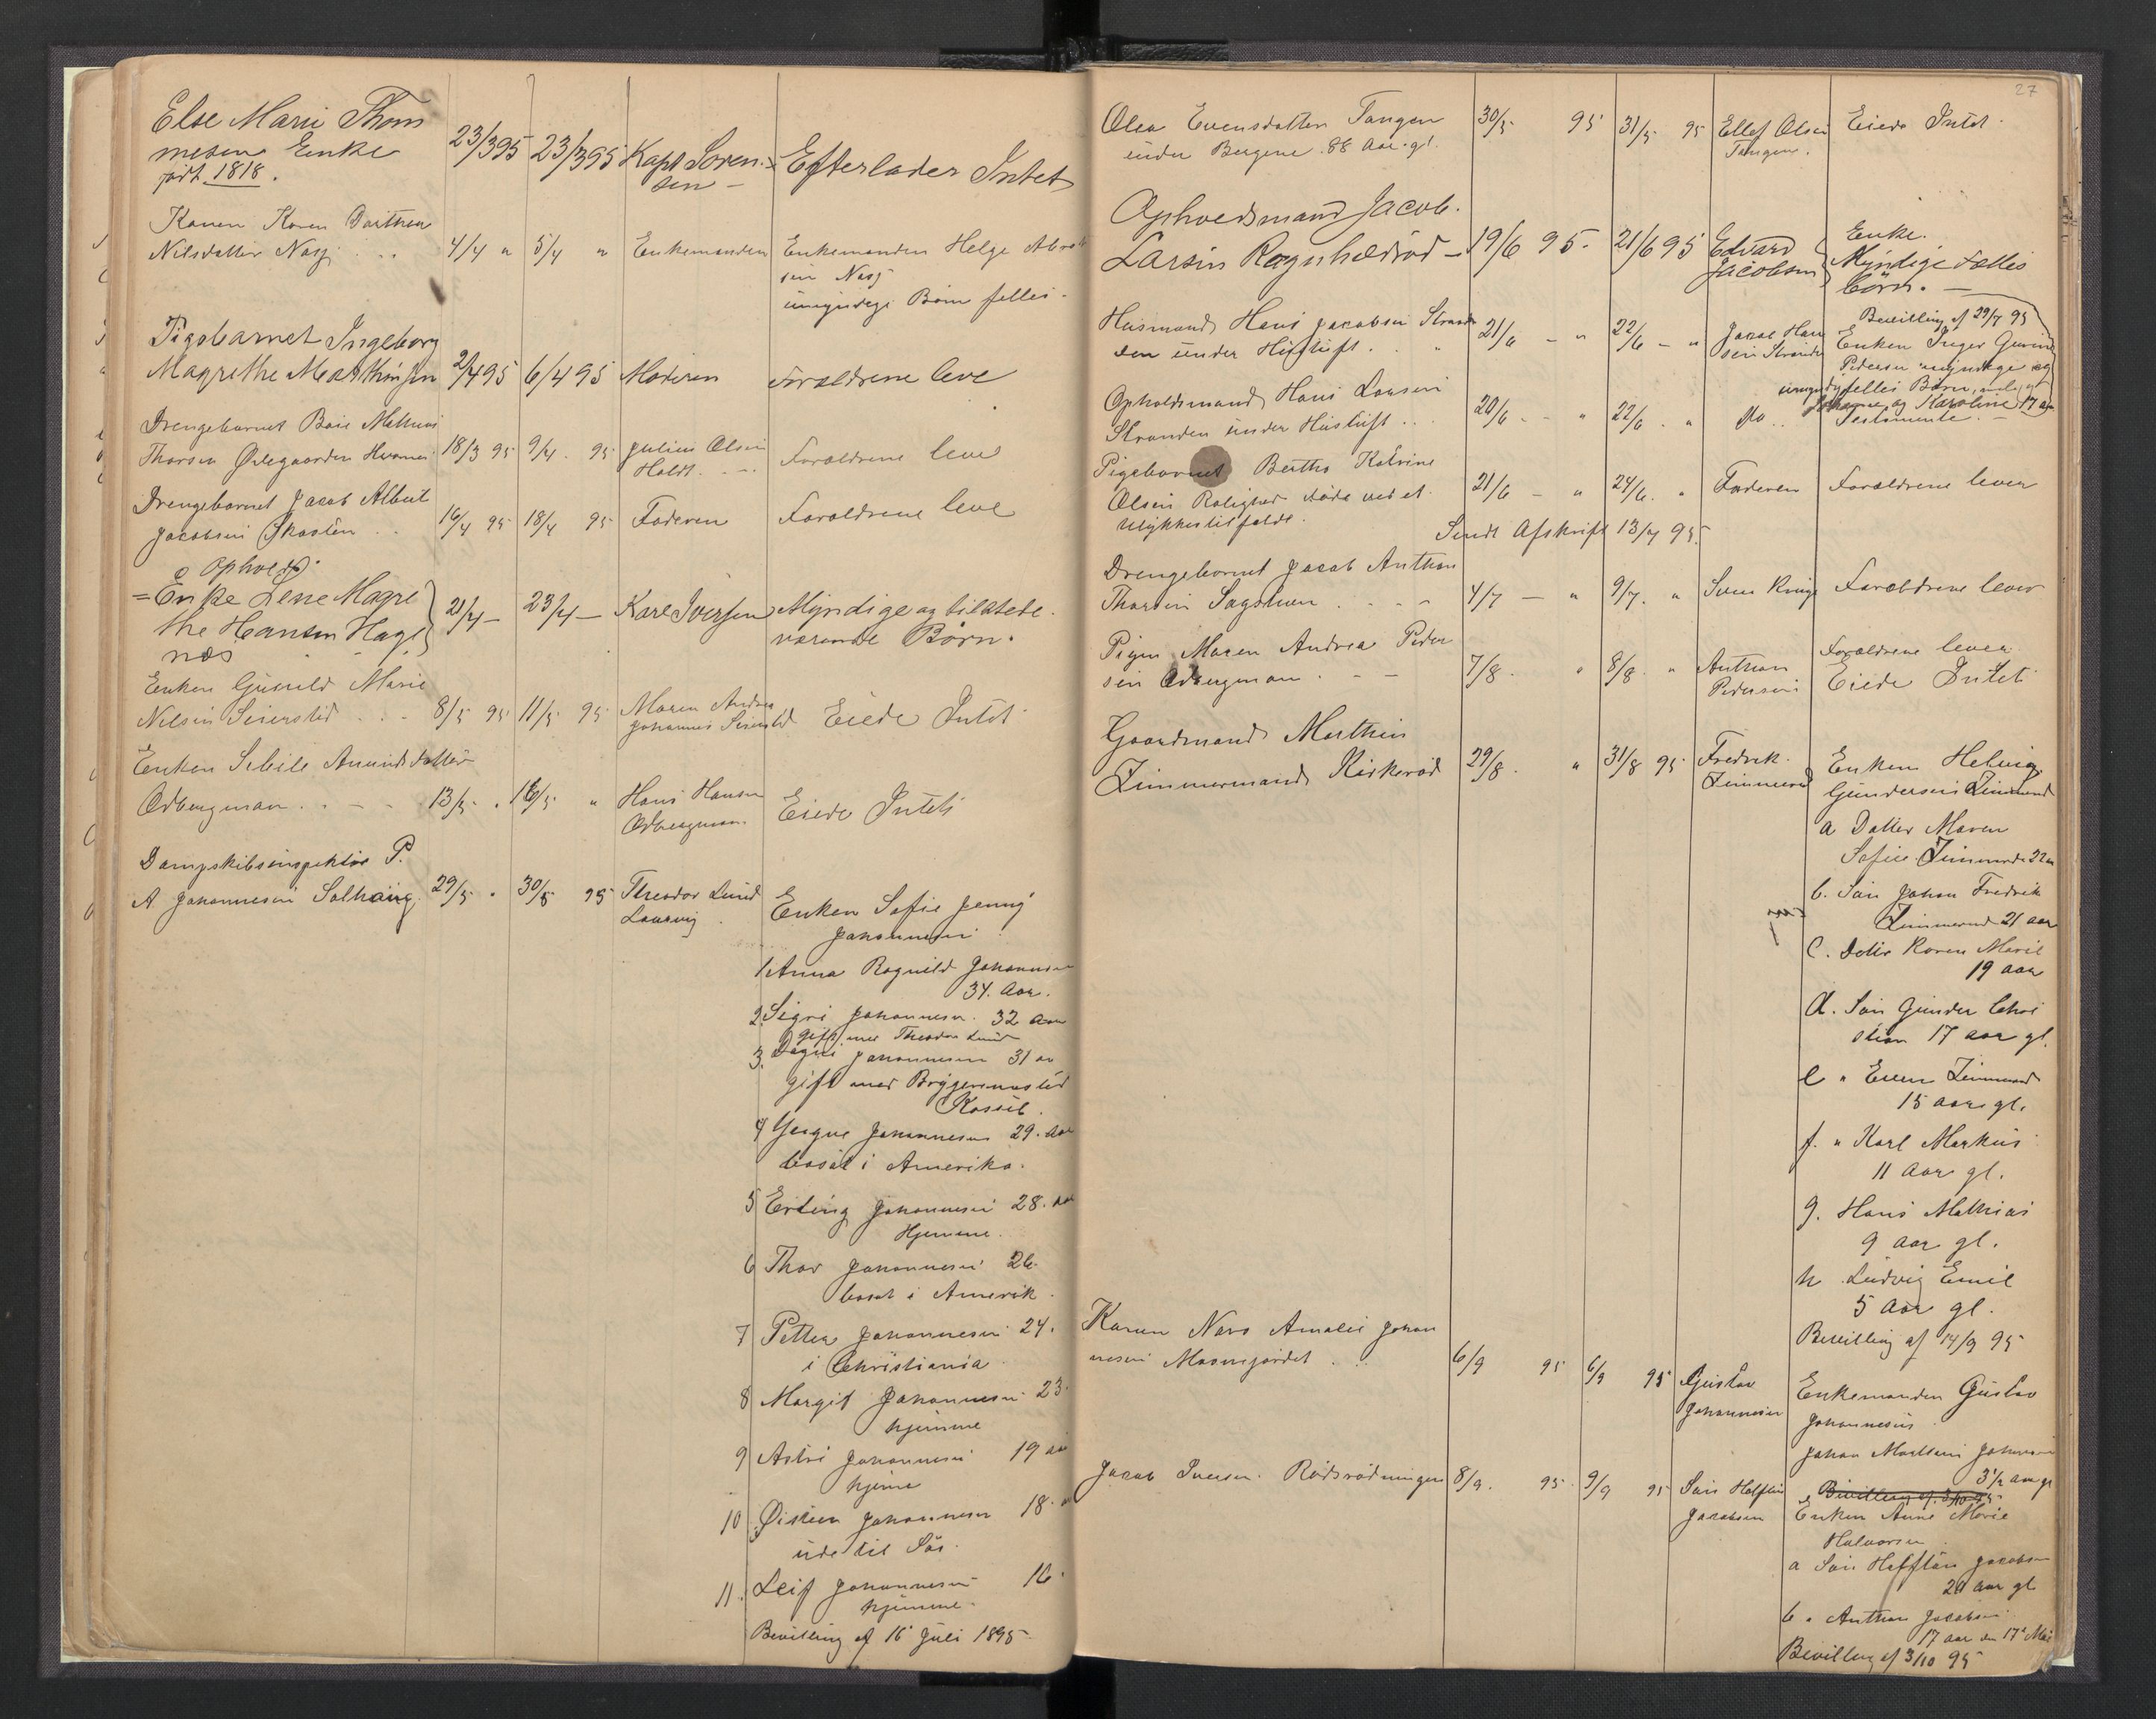 Else Marie Thom
mesen Enke
født 1818.
23/3 95 23/3 95 Kapt Soren-
sen -
Efterlader Intet
Konen Karen Dorthea
Nilsdatter Næs 4/4 " 5/4 " Enkemanden Enkemanden Helge
sen Næs
umyndige Børn felles.
Pigebarnet Ingeborg
Magrethe Marthinsen 2/4 95 6/4 95 Moderen Forældrene leve
Drengebarnet Mathias
Thorsen 18/3 95 9/4. 95 Julius Olsen
Holdt. Forældrene leve
Drengebarnet Jacob Albert
Jacobsen 16/4 95 18/4 95 Faderen Forældrene leve
Opholds.
= Enke Lene Magre
the Hansen Hage
næs
21/4 - 23/4 - Karl Iversen Myndige og tilstede.
værende Børn.
Enken Gunild Marie
Nilsen Seiersted 8/5 95 11/5 95 Maren Andrea
Johannes Seiersted Eiede Intet
Enken Sibile Amundsdatter
Odbergmoen 13/5 " 16/5 " Hans Hansen
Odbergmoen Eiede Intet
Dampskibsinspektør P.
A Johannesen Solhaug. 29/5 " 30/5 95 Theodor Lund
Laurvig
Enken Sofie Jenny
Johannesen
1 Anna Ragnild Johannesen
34. Aar.
2. Sigri Johannesen. 32 Aar
gift med Theodor Lund
3. Dagni Johannesen 31 aar
gift med Bryggerimester
4 Yngve Johannesen 29. Aar
bosat i Amerika.
5 Erling Johannesen 28. Aar
Hjemme.
6 Thor Johannesen 26.
bosat i Amerik.
7 Petter Johannesen 24.
i Christiania
8 Margit Johannesen 23.
hjemme
9 Astri Johannesen 19 aar
hjeme
10 Øistein Johannesen 18.
ude til Søs.
11. Leif Johannesen 16.
hjemme.
Bevilling af 16 Juli 1895
27
Olea Evensdatter Tangen
under Bergene. 88 Aar. gl. 30/5 95 31/5 95 Ellef Olsen
Tangene. Eiede Intet.
Opholdsmand Jacob.
Larsen Ragnhildrød - 19/6 95. 21/6 95 Edvard
Jacobsen
Enke.
Myndige Fælles
børn.
Husmand Hans Jacobsen Stran
den under 21/6 - " 22/6 - " Jacob Han
sen Stranden
Bevilling af 29/7 95
Enken Inger
Pedersen myndige og
umyndig felles Børn,
og Karoline 17 aar
Opholdsmand Hans Larsen
Stranden under 20/6 - " 22/6 . " Do Testamente
Pigebarnet Bertha Katrine
Olsen Rolighed døde ved et
Ulykkestilfælde. 21/6 - " 24/6. " Faderen Forældrene lever
Sendt Afskrift 13/7 95.
Drengebarnet Jacob Anthon
Thorsen 4/7 - " 9/7. " Forældrene lever
Pigen Maren Andrea Peder
sen Odbergmoen. 7/8 " 8/8 " Anthon
Pedersen
Forældrene lever
Eiede Intet
Gaardmand Marthin
Zimmermand Kirkerød 29/8. " 31/8 95 Fredrik
Zimmermd
Enken Helvig
Gundersen Zimmermand
a Datter Maren
Sofie Zimmermd 22 aar
b. Søn Johan Fredrik
Zimmermd 21 aar
C. Datter Karen Marie
19 aar
d. Søn Gunder Chri
stian 17 aar gl.
e " Even Zimmermand
15 aar gl.
f. " Karl Markus
11 Aar gl.
g. Hans Mathias
9 aar gl.
h Ludvig Emil
5 Aar gl.
Bevilling af 14/9 95
Konen Amalie Johan
nesen 6/9 95 6/9 95 Gustav
Johannesen
Enkemanden Gustav
Johannesen
Johan Johannesen
3 1/2 aar gl
Bevilling af 3/10 95
Jacob Iversen. Rødsrødningen 8/9. 95. 9/9 95 Søn
Jacobsen
Enken Anne Marie
Halvorsen
a Søn Jacobsen
20 aar gl
b. " Anthon Jacobsen
17 aar den 17de Mai
Bevilling af 3/10 95